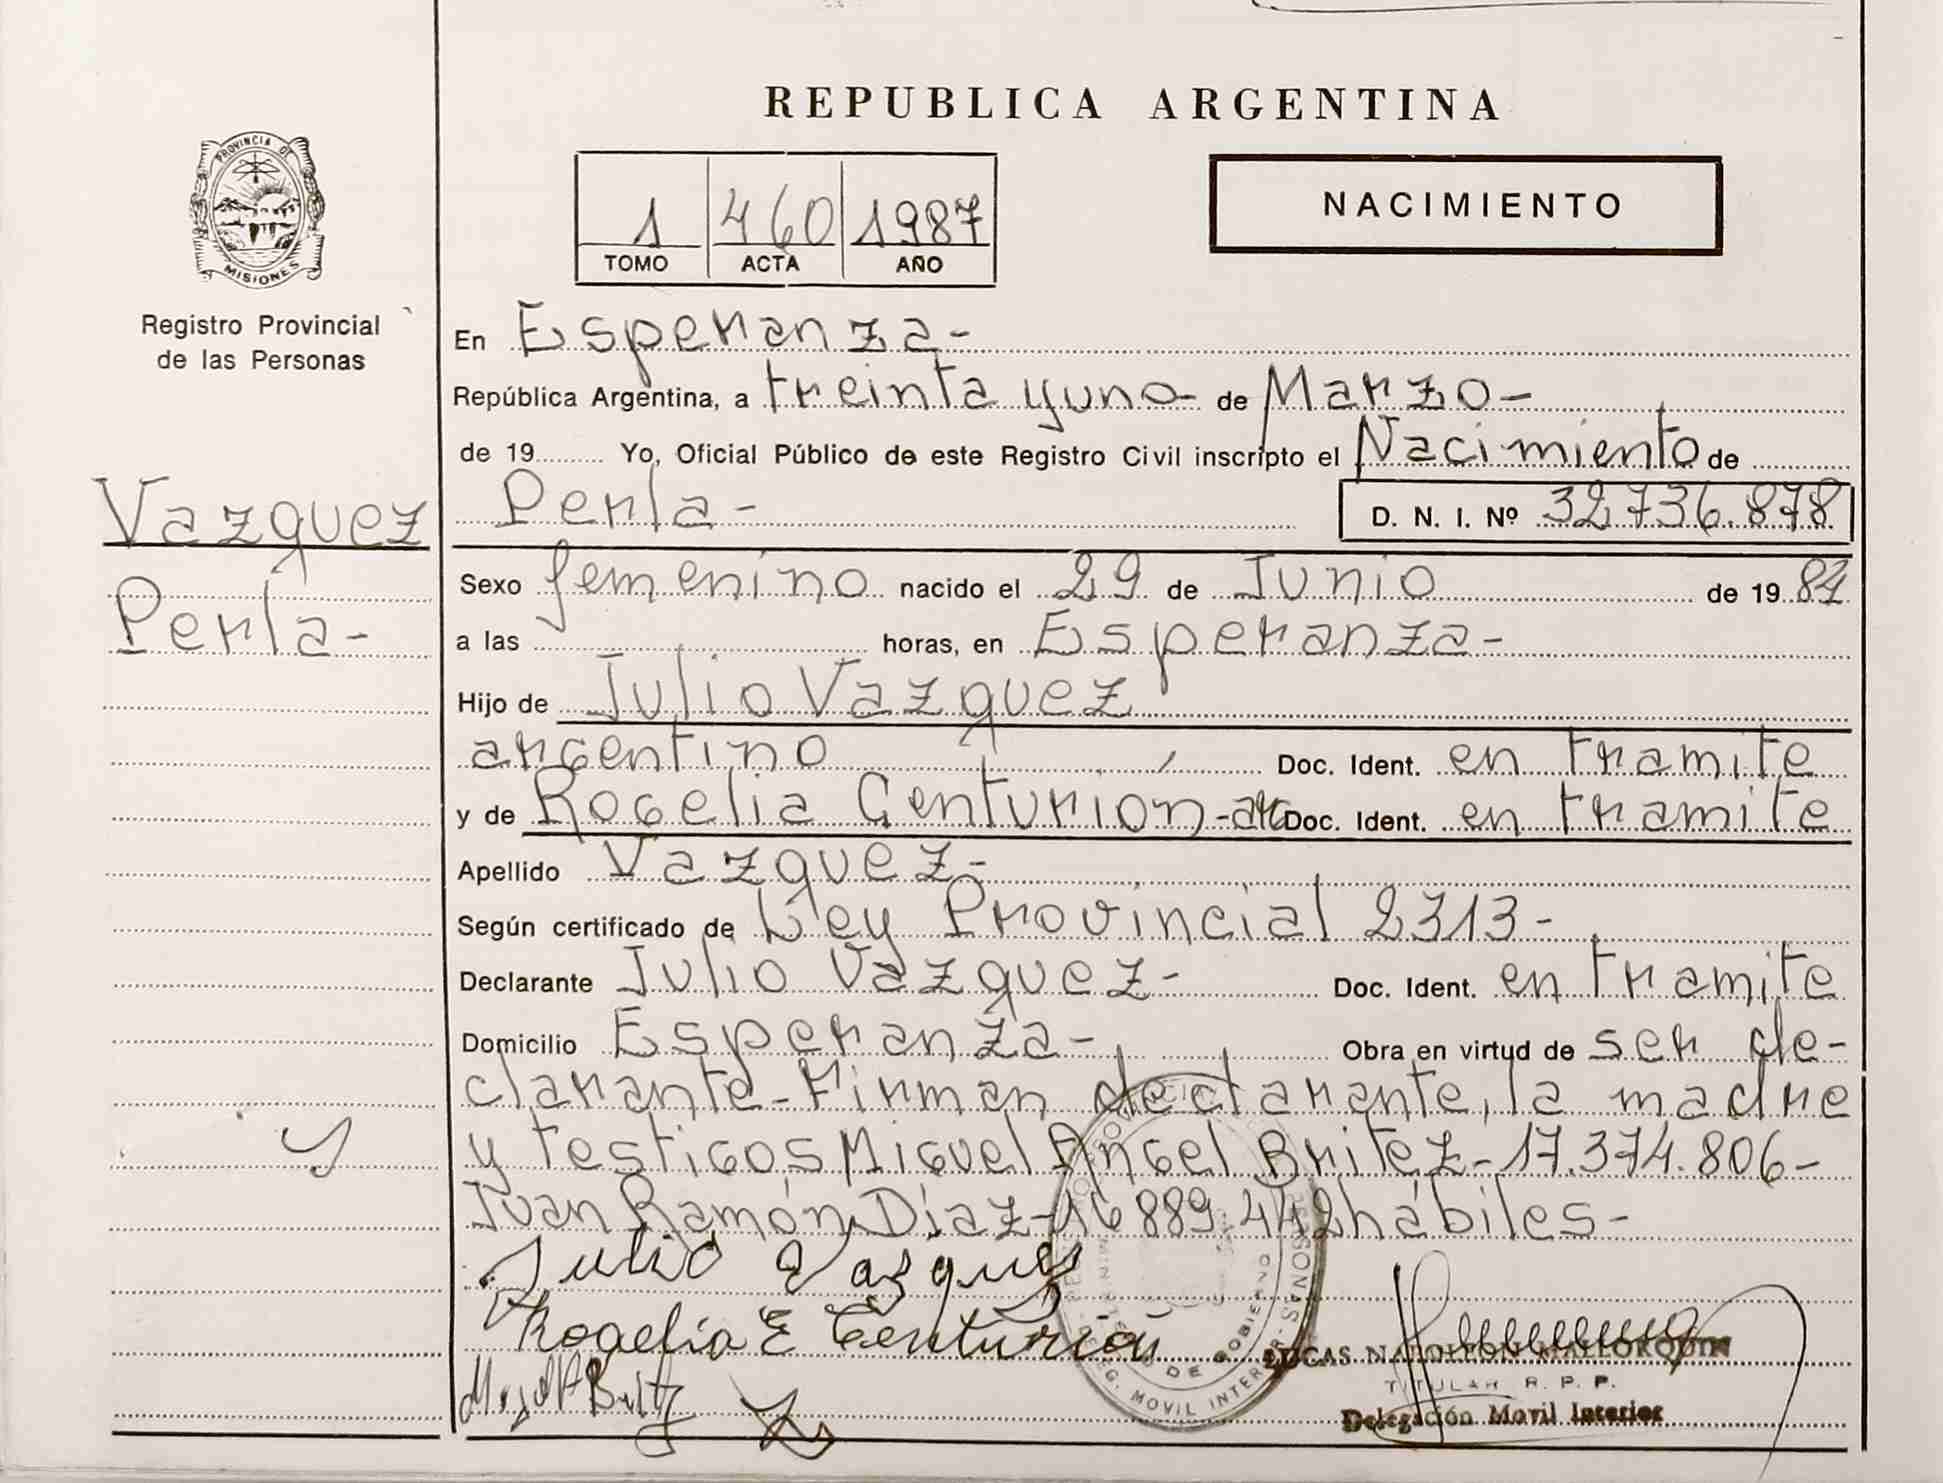 REPUBLICA ARGENTINA
PROVINCIA DE
MISIONES
Registro Provincial
de las Personas
1 460 1987
TOMO ACTA AÑO
NACIMIENTO
Vazquez
Perla-
En Esperanza-
República Argentina, a treinta y uno de Marzo-
de 19 Yo, Oficial Público de este Registro Civil inscripto el Nacimiento de
Perla- D. N. I. Nº 32.736.878
Sexo femenino nacido el 29 de Junio de 19
a las horas, en Esperanza-
Hijo de Julio Vazquez
argentino Doc. Ident. en tramite
y de Rogelia Centurion-arg Doc. Ident. en tramite
Apellido Vazquez-
Según certificado de Ley Provincial 2313-
Declarante Julio Vazquez- Doc. Ident. en tramite
Domicilio Esperanza- Obra en virtud de ser de-
clarante-Firman declarante, la madre
y testigos Miguel Angel Britez-17.374.806-
Juan Ramón Díaz-16889.442 hábiles-
Julio Vazquez
Rogelia E Centurión
LUCAS NAPOLEON MALLORQUIN
TITULAR R. P. P.
Delegación Movil Interior
DE GOBIERNO
REG. MOVIL INTERIOR